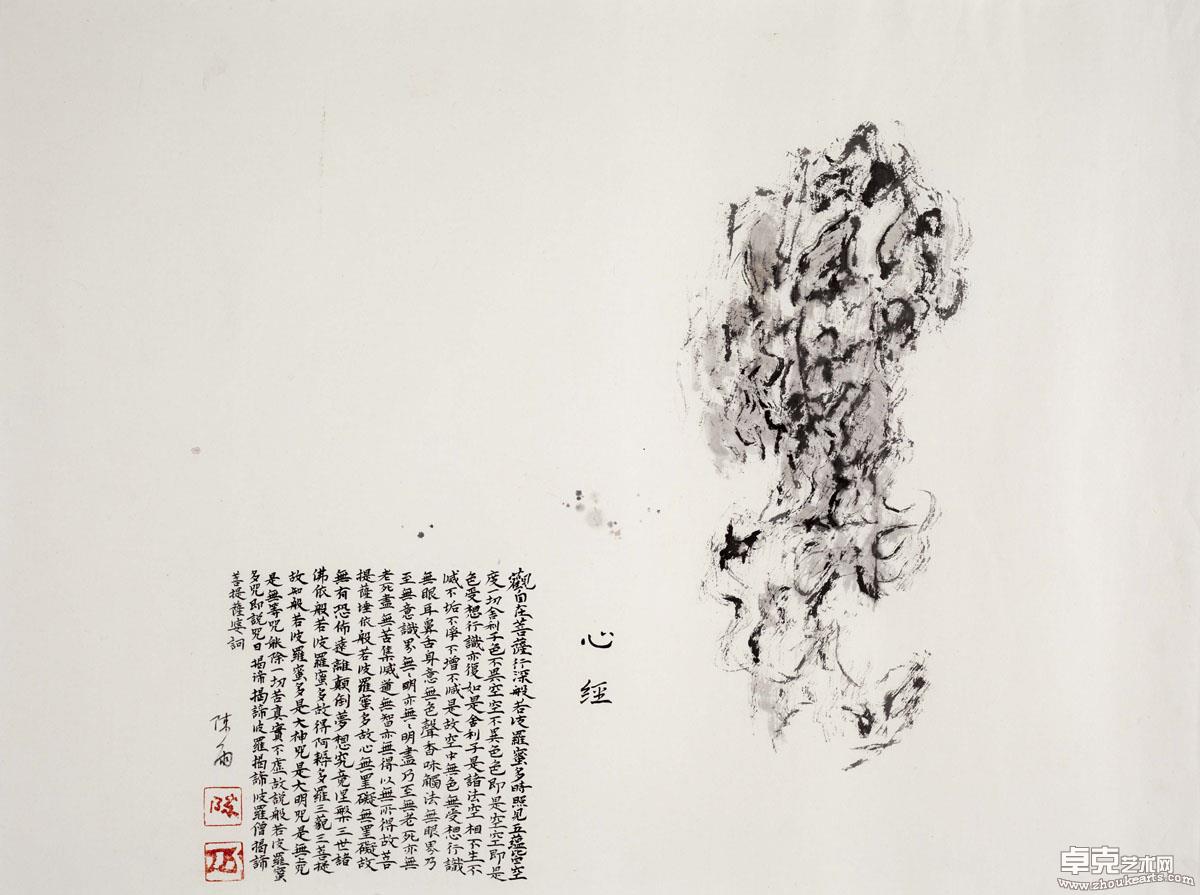 心經
觀自在菩薩行深般若波羅蜜多時照見五蘊空空
度一切舍利子色不異空空不異色色即是空空即是
色受想行識亦復如是舍利子是諸法空相不生不
滅不垢不淨不增不減是故空中無色無受想行識
無眼耳鼻舌身意無色聲香味觸法無眼界乃
至無意識界無〻明亦無〻明盡乃至無老死亦無
老死盡無苦集滅道無智亦無得以無所得故菩
提薩埵依般若波羅蜜多故心無罣礙無罣礙故
無有恐佈遠離顛倒夢想究竟涅槃三世諸
佛依般若波羅蜜多故得阿耨多羅三藐三菩提
故知般若波羅蜜多是大神咒是大明咒是無
是無等咒能除一切苦真實不虛故說般若波羅蜜
多咒即說咒曰揭諦揭諦波羅揭諦波羅僧揭諦
菩提薩婆訶
陳
卓克艺术网
www.zhoukearts.com